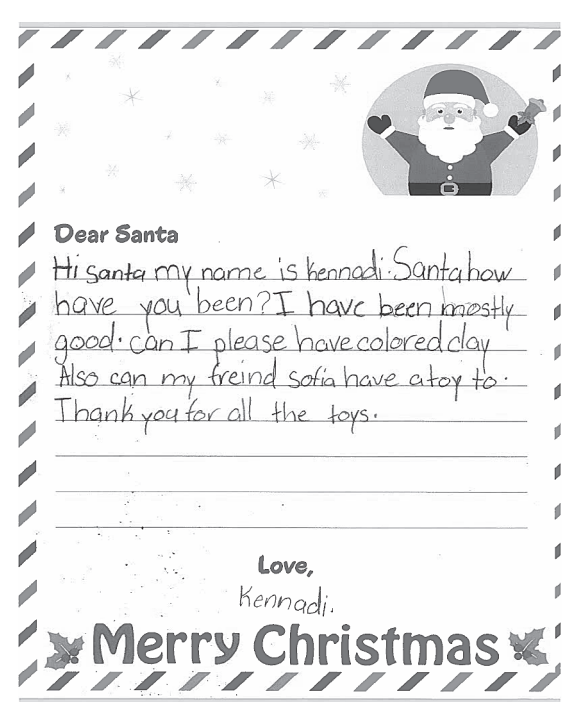 Dear Santa
Hi santa my name is kennadi. Santa how
have you been? I have been mostly
good. can I please have colored clay
Also can my freind sofia have a toy to.
Thank you for all the toys.
Love,
Kennadi.
Merry Christmas